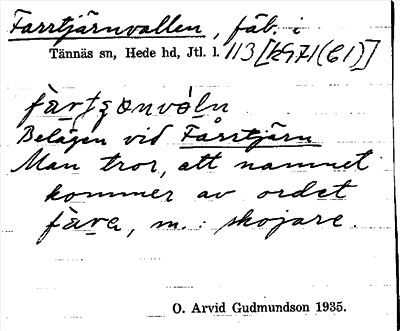 Farrtjärnvallen, fäb. i
Tännäs sn, Hede hd, Jtl. l. 113 [kg71(C1)]
Belägen vid Fårrtjärn
Man tror, att namnet
kommer av ordet
m.: skojare.
O. Arvid Gudmundson 1935.